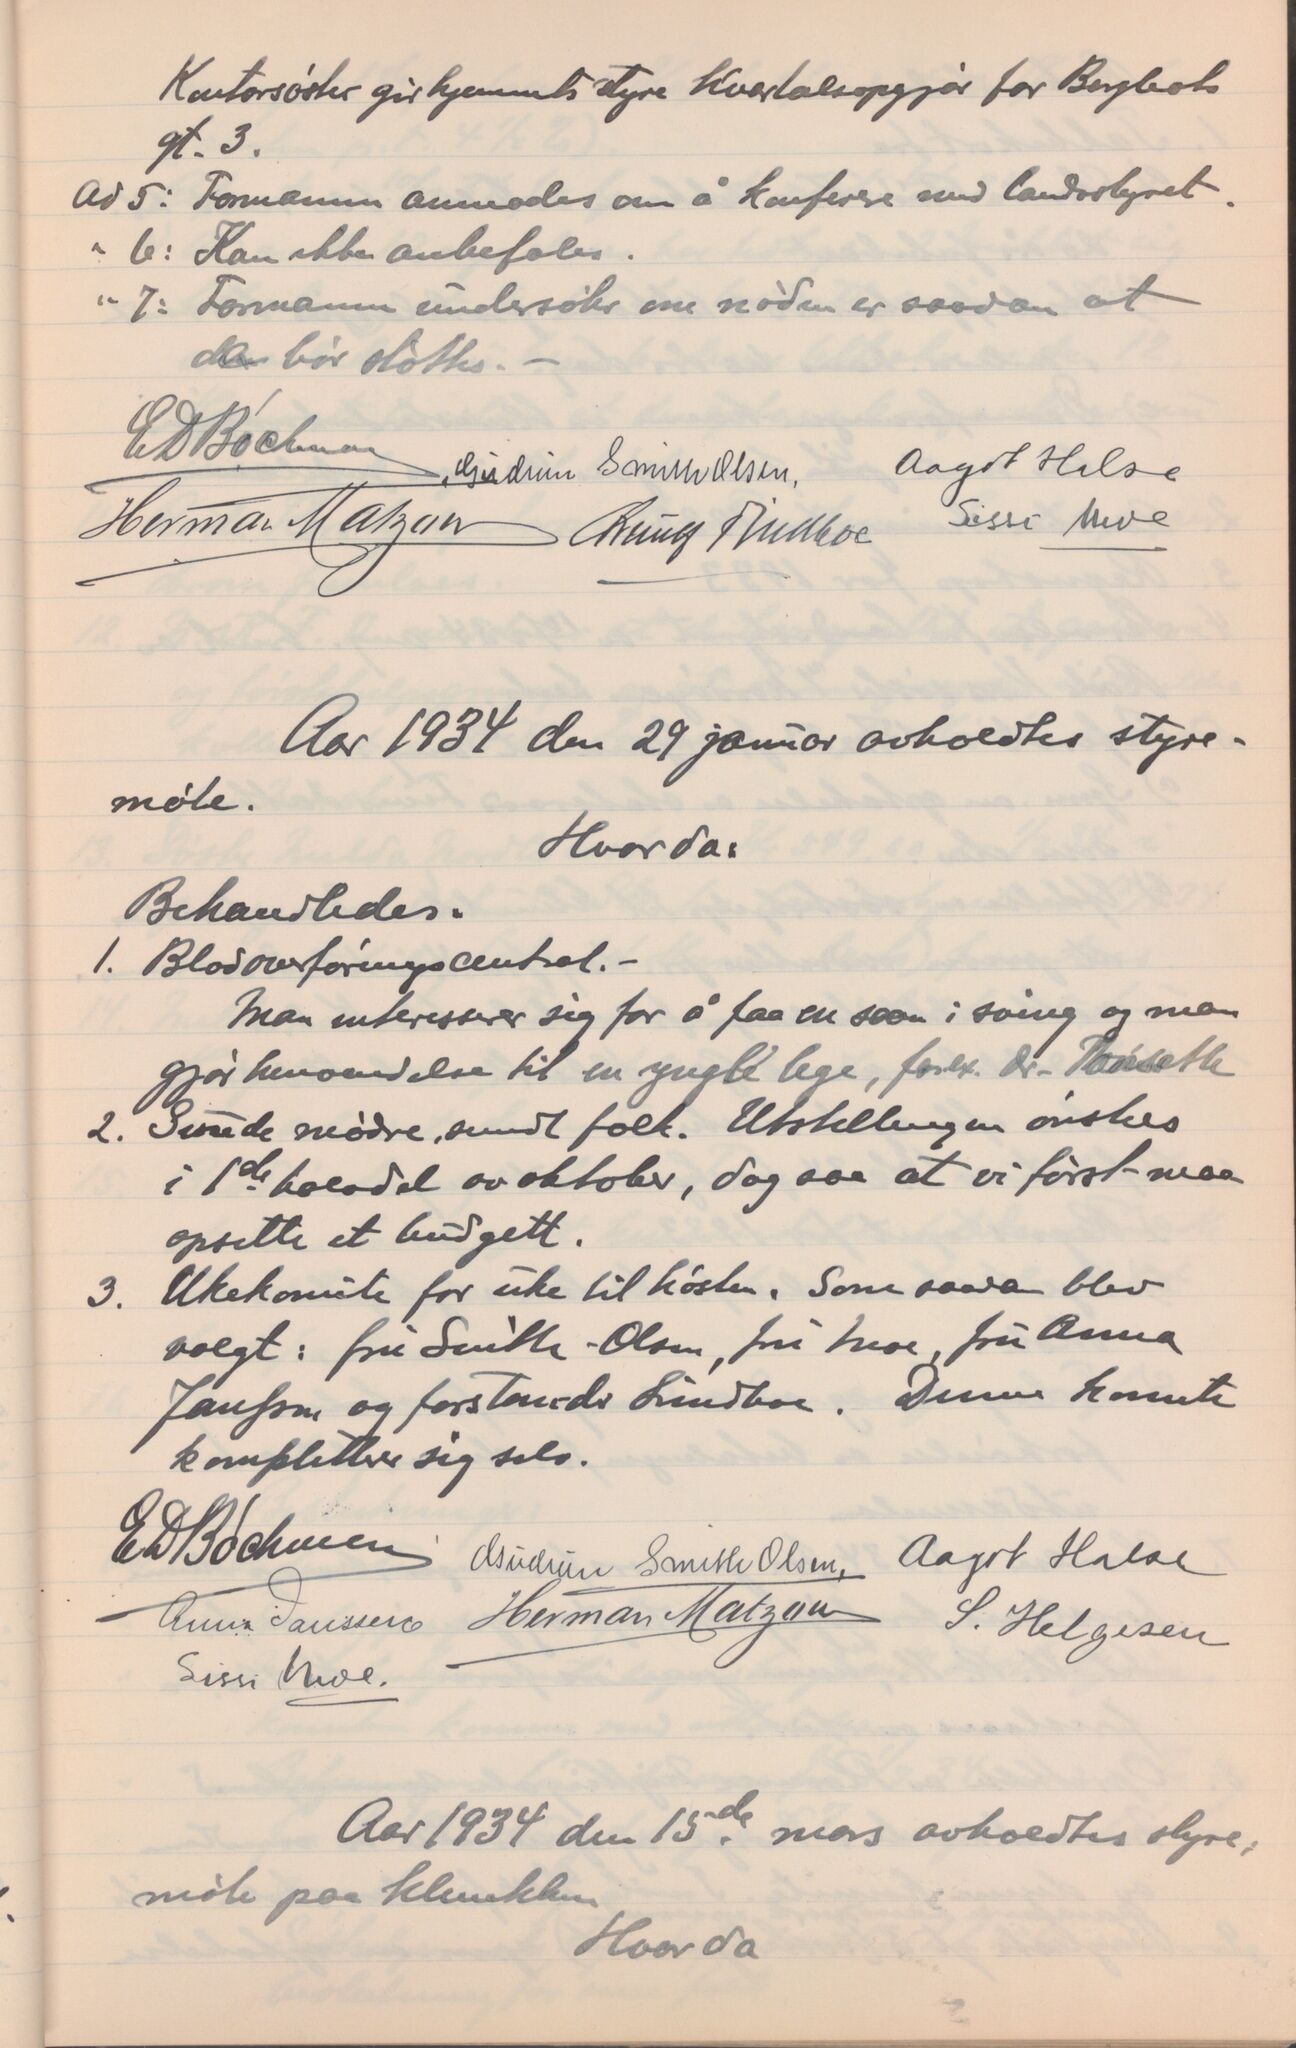 Kontorsöster gir hjemmets styre Kvartalsopgjör for Bergliots
gt. 3.
Ad 5: Formannen anmodes om å konferere med landsstyret.
" 6: Kan ikke anbefales.
" 7: Formannen undersöker om nöden er saadan at
den bör stöttes. -
E D Böchman
Gudrun Smith Olsen, Aagot Halse
Herman Matzow Lindboe Sissi Moe
Aar 1934 den 29 januar avholdtes styre-
möte.
Hvor da:
Behandledes.
1. Blodoverföringscentral. -
Man interesserer sig for å faa en saan i sving og man
gjör henvendelse til en yngre lege, f.eks. dr.
2. Sunde mødre, sundt folk. Utstillingen önskes
i 1ste halvdel av oktober, dog saa at vi först maa
opsette et budgett.
3. Ukekomite for uke til hösten. Som saadan blev
valgt: fru Smith-Olsen, fru Moe, fru Anna
Janssen og forstander Lindboe. Denne komite
kompletterer sig selv.
E D Böchman Gudrun Smith Olsen, Aagot Halse
Anna Janssen Herman Matzow S. Helgesen
Sissi Moe.
Aar 1934 den 15de mars avholdtes styre-
möte paa klinikken
Hvor da